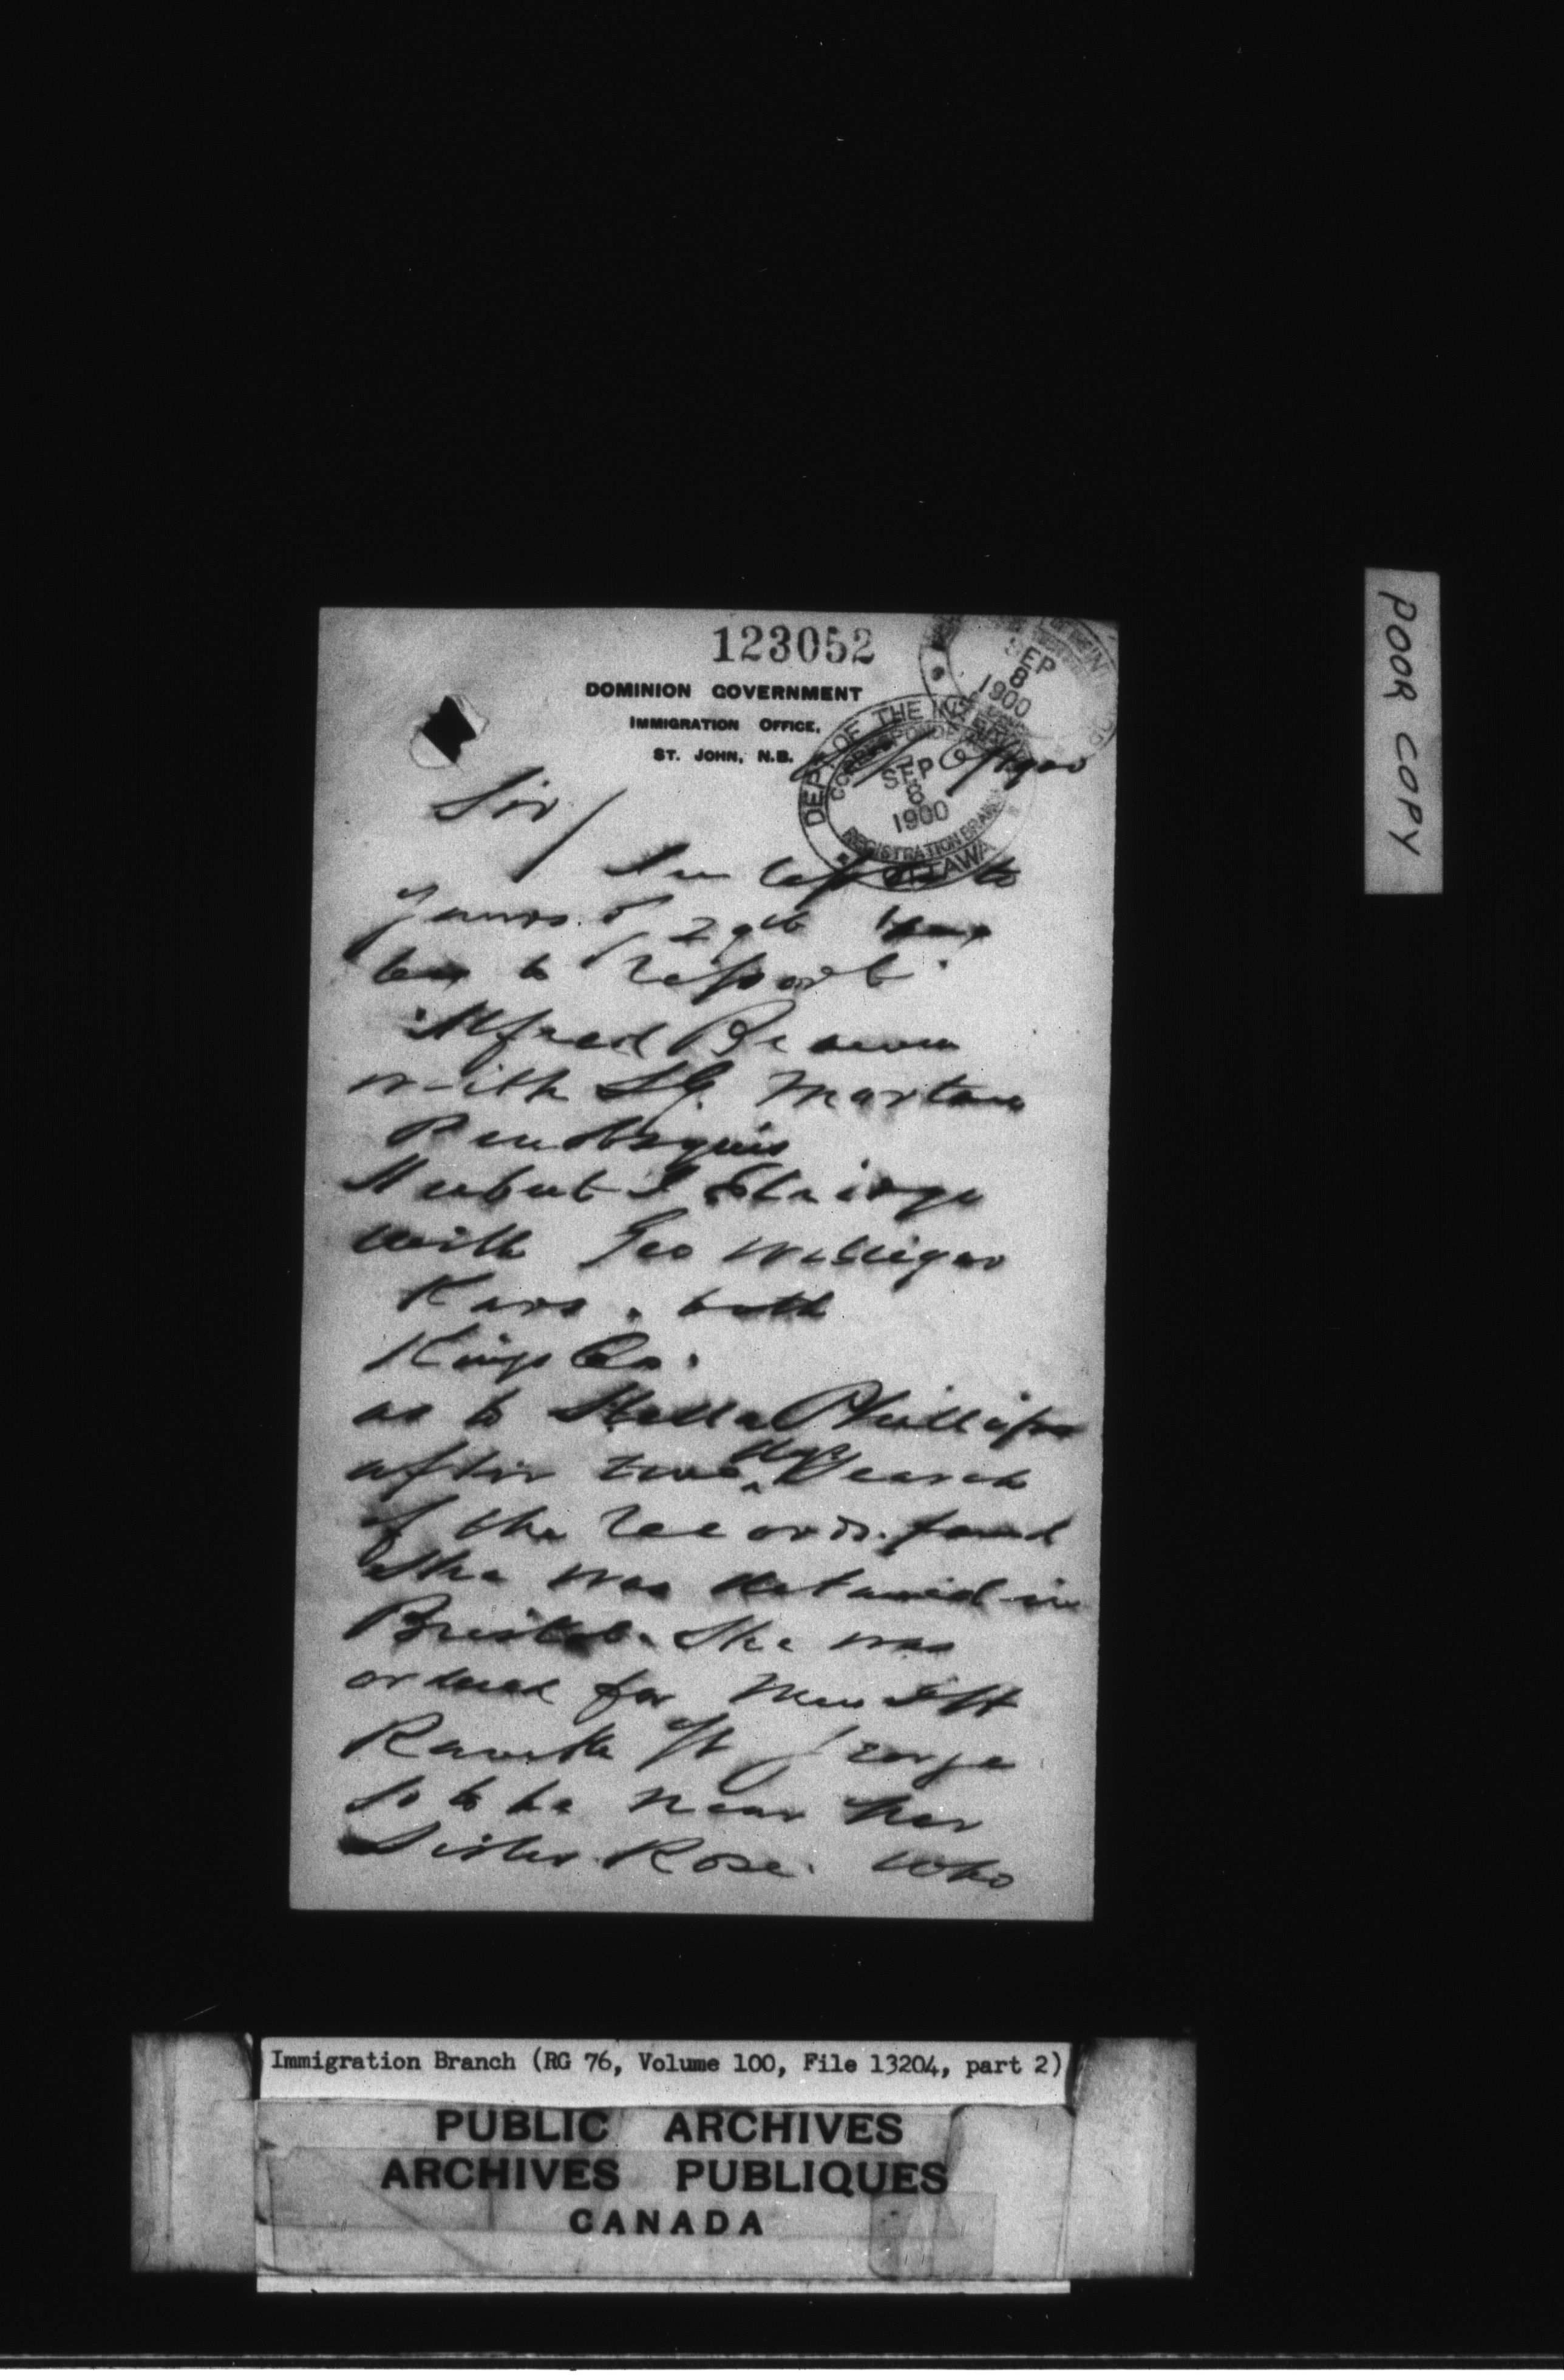 123052
DOMINION GOVERNMENT
IMMIGRATION OFFICE,
ST. JOHN, N.B.
1900
SEP
8
1900
DEPT OF THE INTERIOR
CORRESPONDENCE
SEP
8
1900
REGISTRATION BRANCH
OTTAWA
Sir/
In to
yours of 29th
beg to report
Alfred Brown
with S.G. Morton
Penobsquis
Herbert J
with Geo
Kars. both
Kings Co.
as to Stella Phillips
after two days search
of the records. found
She was detained in
Bristol. She was
ordered for
St George
So to be near her
Sister Rose. who
POOR COPY
Immigration Branch (RG 76, Volume 100, File 13204, part 2)
PUBLIC ARCHIVES
ARCHIVES PUBLIQUES
CANADA